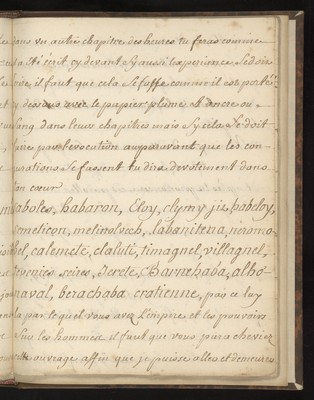 sans vu autre chapitre des heures tu feras comme
a esté écrit cy devant, sy aussi l'experience se doit
il faut que cela se fasse comme il est porté
dessus avec le papier plume et ancre ou
sang. dans leurs chapitres mais sy cela se doit
faire par l'evocation auparavant que les con
jurations se fassent tu dira devotement dans
ton cœur
abotes, habaron, Eloy, clymy jis, babeloy,
semeticon, metinolvech, Labanitena, neromo
calemele, claluti, timaguel, villaguel,
tevenies seire, Jerete, Barnehaba, alho
naval, berachaba cratienne, par ce luy
par lequel vous avez l'empire et les pouvoirs
Sur les hommes il faut que vous paracheviez
cette ouvrage affin que je puisse aller et demeurer